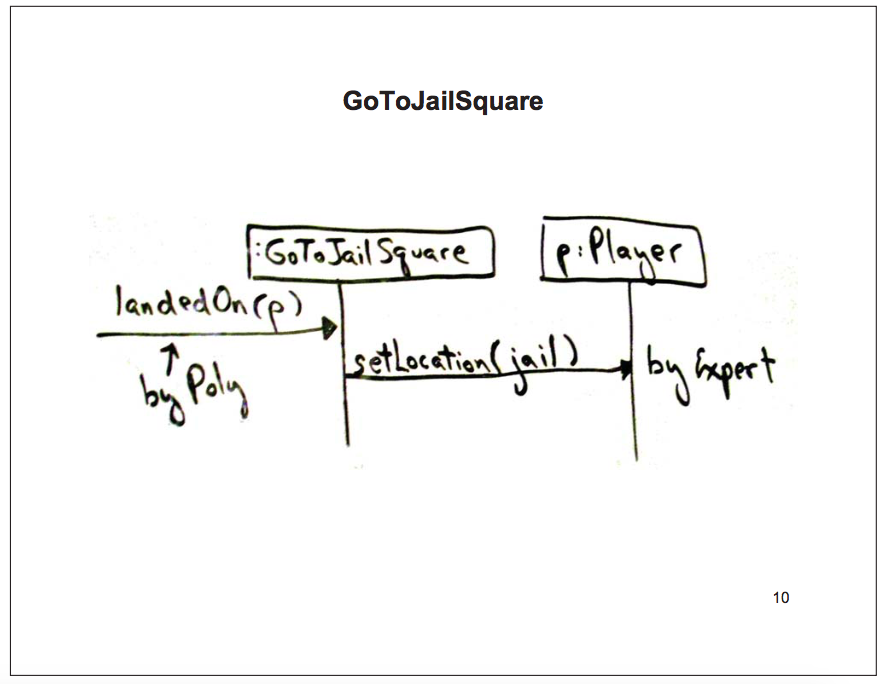 GoToJailSquare
:GoToJailSquare
p:Player
landedOn(p)
setLocation(jail)
by Expert
by Poly
10